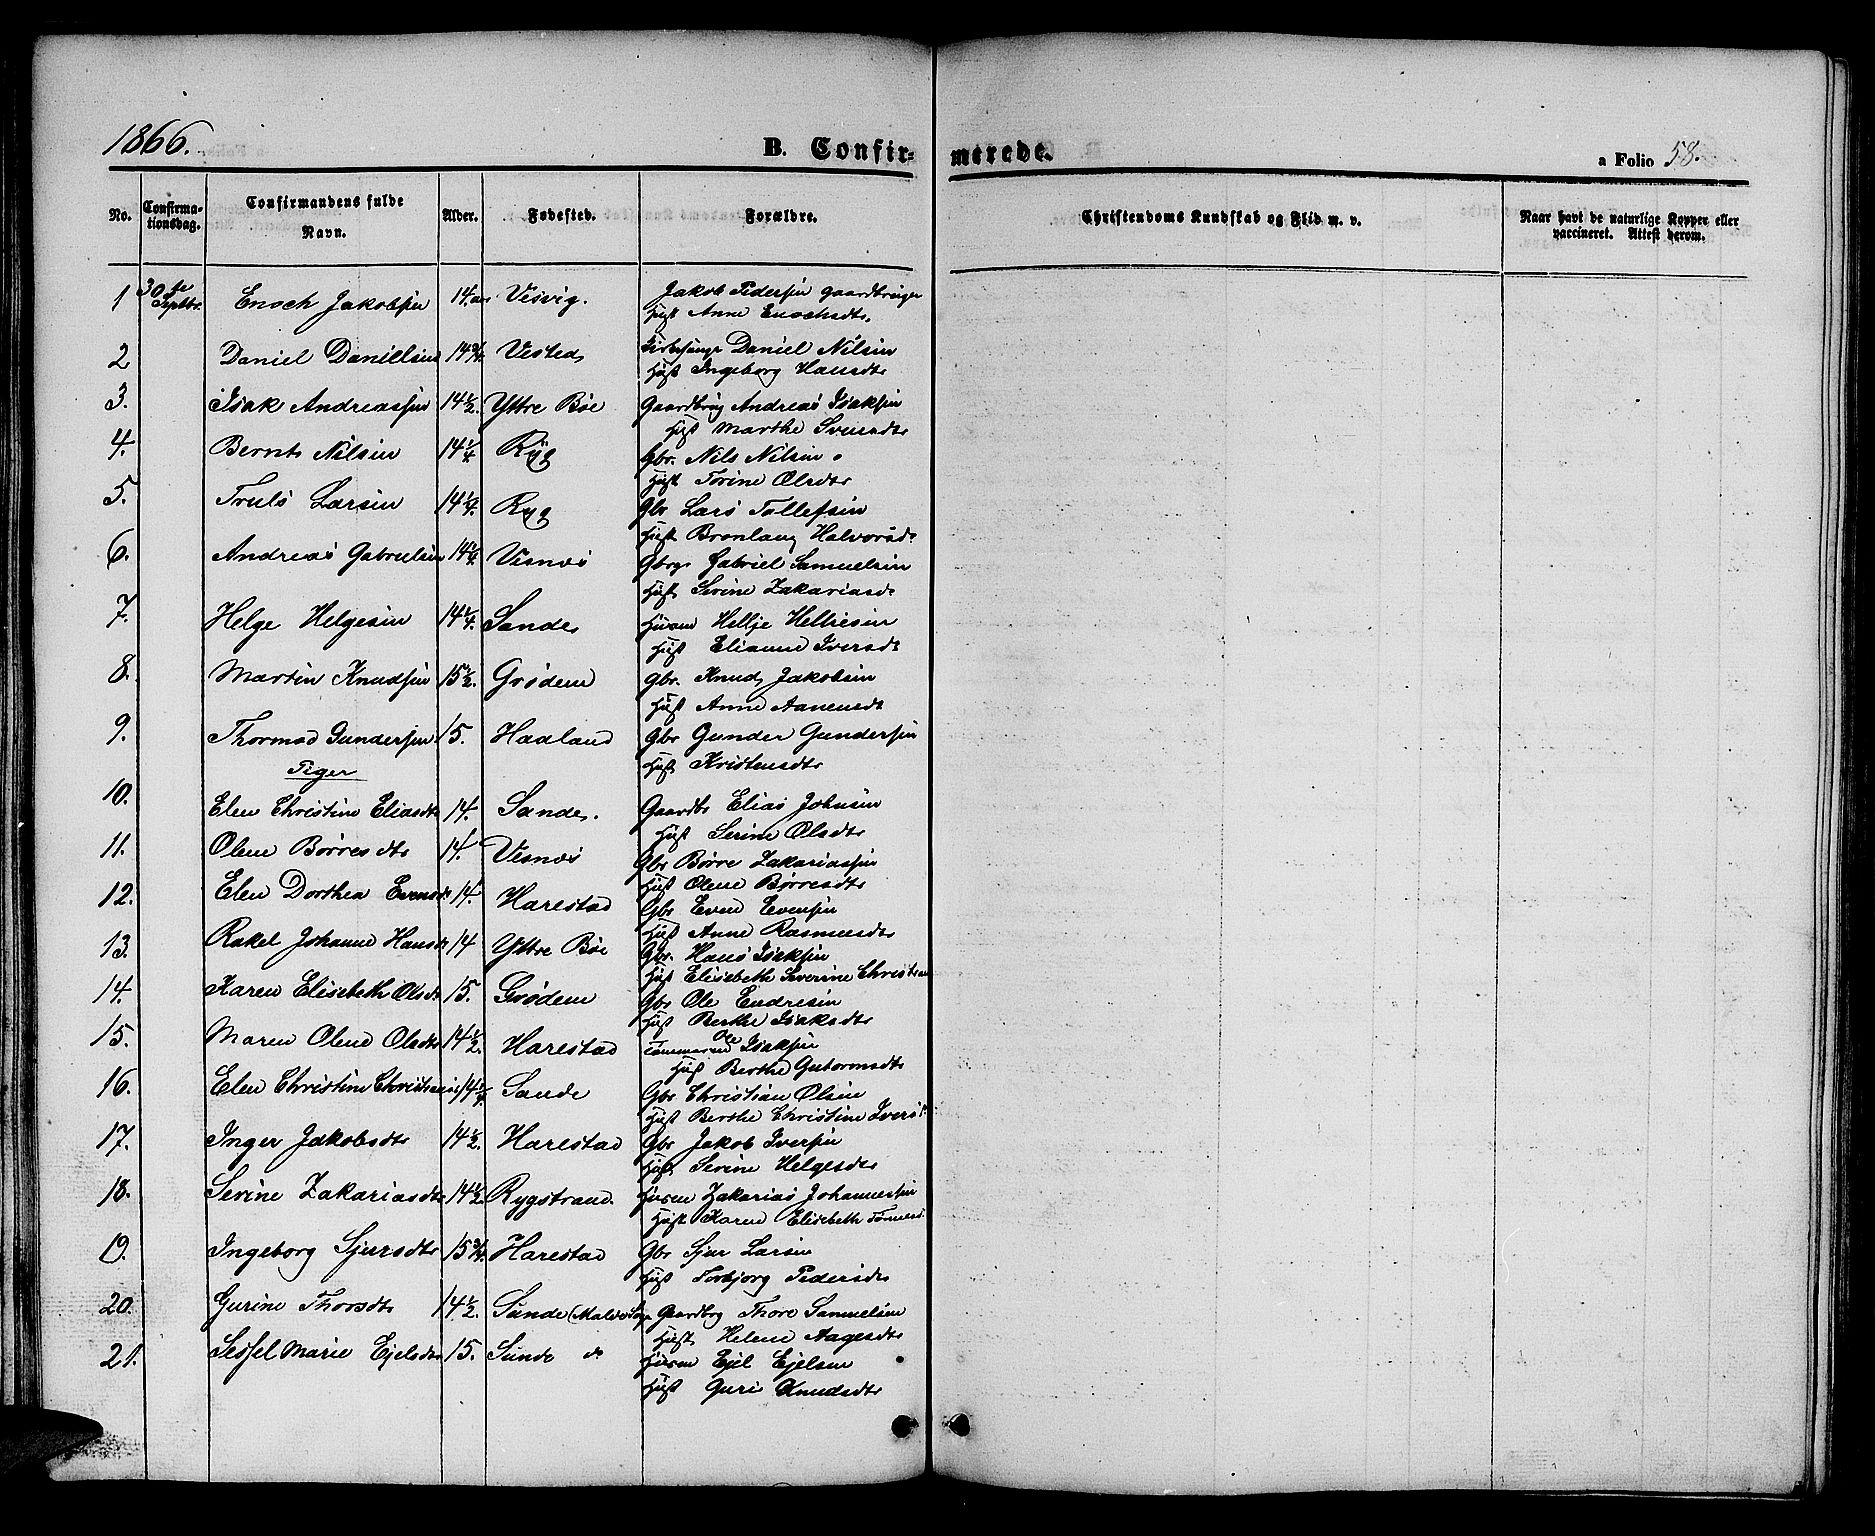 1866. B. Confirmerede. a Folio 58.
No. Confirmationsdag. Confirmandens fulde Navn. Alder. Fødested. Forældre. Christendoms Kundskab og Flid m. v. Naar havt de naturlige Kopper eller vaccineret. Attest derom.
1 30te Septbr. Enoch Jakobsen 14 Visvig. Jakob Pedersen Gaardbruger
Hust Anne Enochsdtr.
2 Daniel Danielsen 14 3/4 Vested Daniel Nilsen
Hust Ingeborg Hansdtr
3. Isak Andreassen 14 1/2. Yttre Bøe Gaardbrug Andreas Isaksen
Hust Marthe Svensdtr
4. Bernt Nilsen 14 1/4. Ryg Gbr. Nils Nilsen
Hust Torine Olsdtr
5. Truls Larsen 14 1/4. Ryg Gbr Lars Tollefsen
Hust Bronlaug Halvorsd.
6. Andreas Gabrielsen 14 1/4. Visnes Gbrg. Gabriel Samuelsen
Hust Serine Zakariasd.
7. Helge Helgesen 14 1/4. Sande Husm Hellje Helliesen
Hust Elianne Iversdt
8. Martin Knudsen 15 1/2. Grødem Gbr. Knud Jakobsen
Hust Anne Aanensdt
9. Thormod Gundersen 15. Haaland Gbr Gunder Gundersen
Piger Hust Kristensdtr
10. Elen Christine Eliasdtr 14. Sande. Gaardbr Elias Johnsen
Hust Serine Olsdtr
11. Olene Børresdtr 14. Visnes Gbr Børre Zakariassen
Hust Olene Børresdtr
12. Elen Dorthea Evensdr 14. Harestad Gbr Even Evensen
Hust Anne Rasmusdtr
13. Rakel Johanne Hansdr 14 Yttre Bøe Gbr. Hans Isaksen
Hust Elisebeth Severine Christian
14. Karen Elisebeth Olsdt 15. Grødem Gbr Ole Endresen
Hust Berthe Isaksdtr
15. Maren Olene Olsdtr 14 1/2. Harestad Tømmermd Ole Isaksen
Hust Berthe Gutormsdtr
16. Elen Christine Christians 14 1/4. Sande Gbr Christian Olsen
Hust Berthe Christine Ivers
17. Inger Jakobsdtr 14 1/2. Harestad Gbr Jakob Iversen
Hust Serine Helgesdtr
18. Serine Zakariasdtr 14 1/2 Rygstrand. Husm Zakarias Johannessen
Hust Karen Elisebeth
19. Ingeborg Sjursdtr 15 3/4. Harestad Gbr Sjur Larsen
Hust Torbjorg Pedersdtr
20. Gurine Thorsdtr 14 1/2. Sunde (Malde Sogn Gaardbrg Thore Samuelsen
Hust Helene Aagesdtr
21. Sessel Marie Ejelsdtr 15. Sunde do Husm Ejel Ejelsen
Hust Guri Knudsdtr